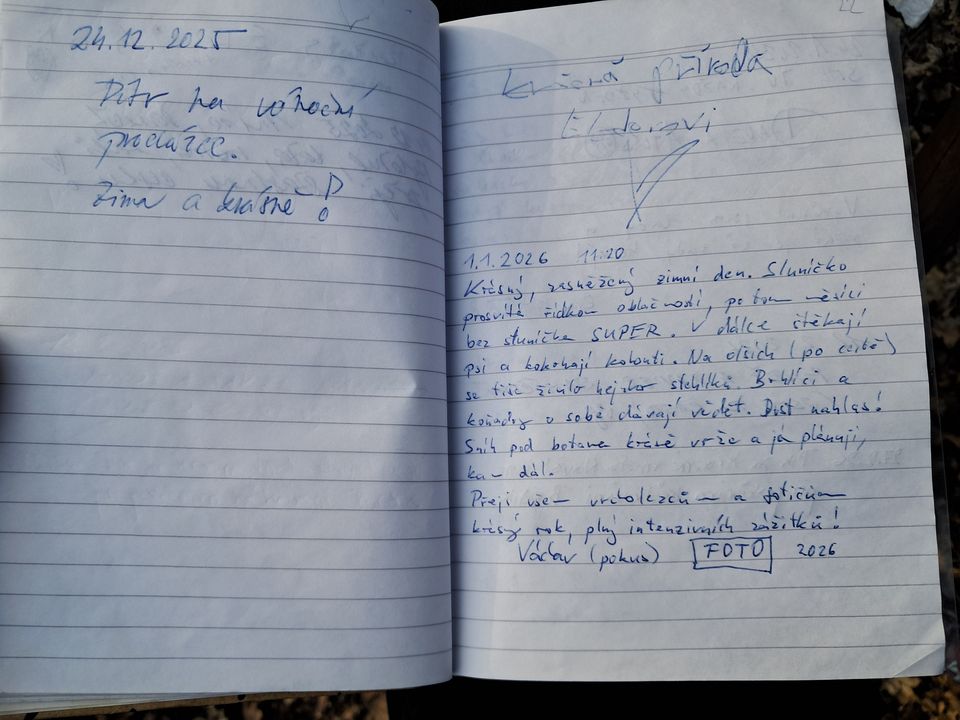 24.12.2025
na vánoční
procházce.
Zima a krásně!
Krásná příroda
1.1.2026 11:20
Krásný, zasněžený zimní den. Sluníčko
prosvítá řídkou oblačností, po tom měsíci
bez sluníčka SUPER. V dálce štěkají
psi a kokrhají kohouti. Na olších (po cestě)
se tiše živilo hejno stehlíků. Brhlíci a
koňadry o sobě dávají vědět. Dost nahlas!
Sníh pod botama krásně vrže a já plánuji,
kam dál.
Přeji všem vrcholezcům a fotičům
krásný rok, plný intenzivních zážitků!
Václav (pokus) FOTO 2026